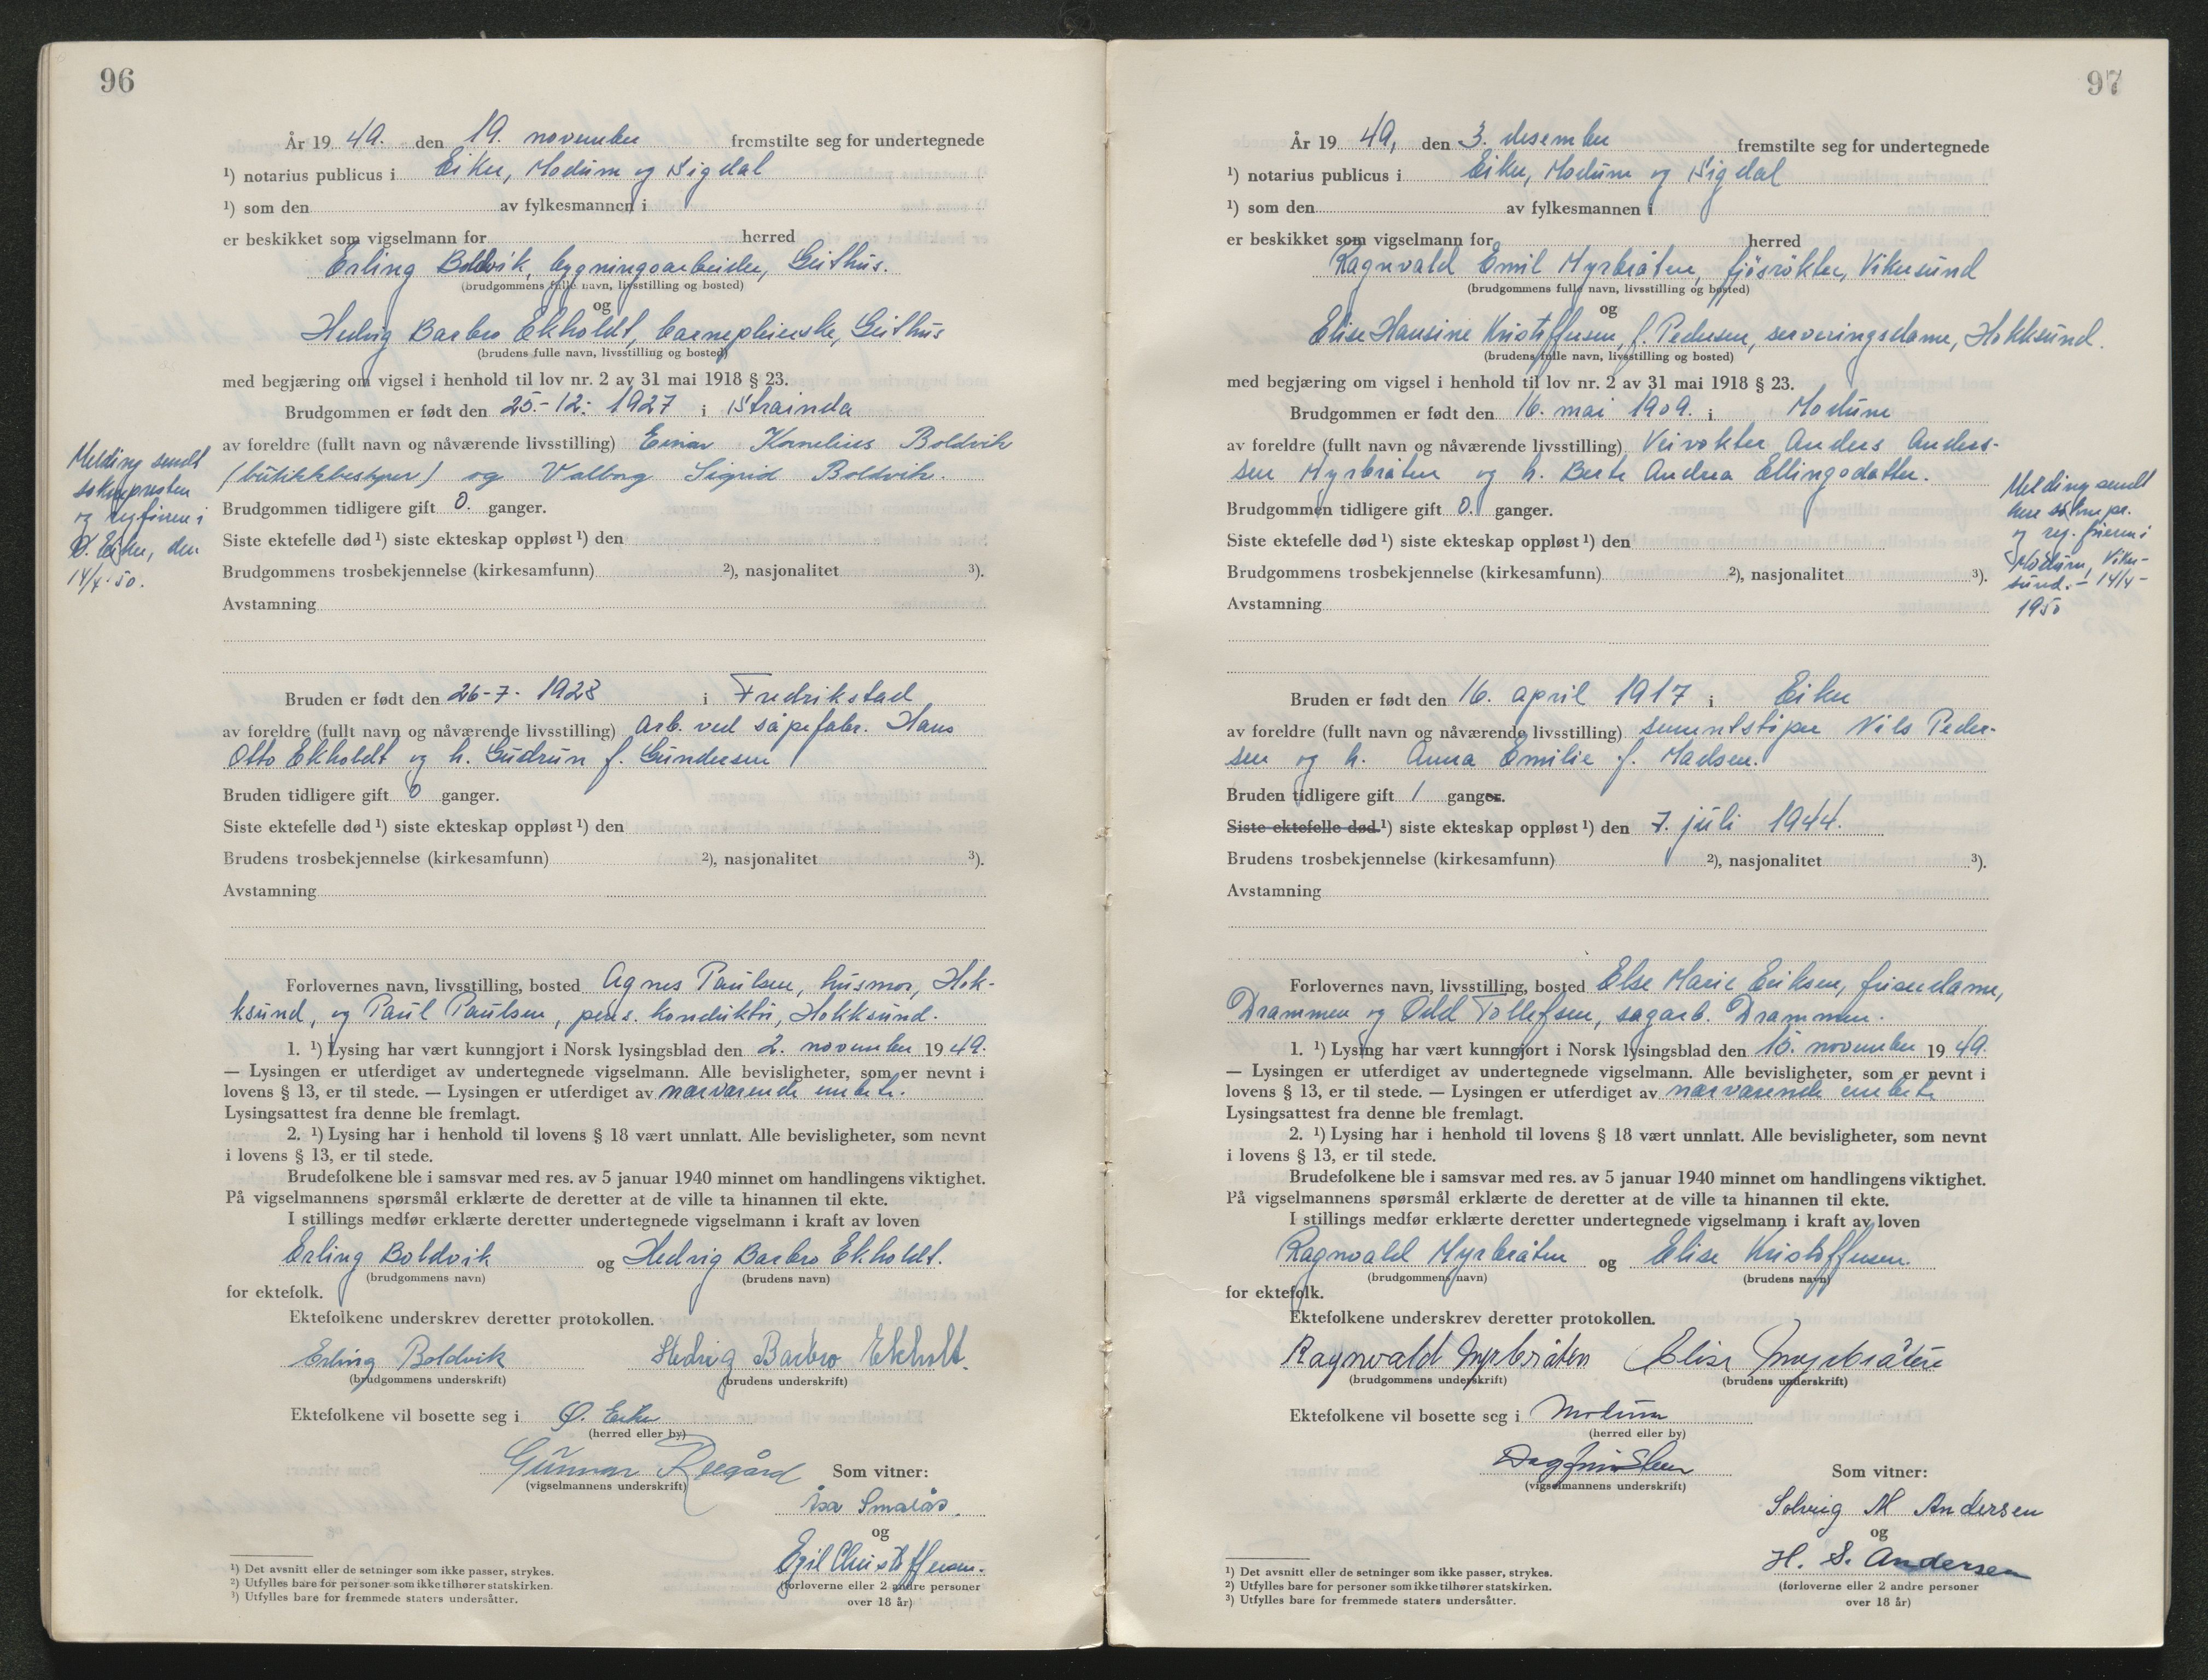 96
År 19 49. den 19. november fremstilte seg for undertegnede
¹) notarius publicus i Eiker, Modum og Sigdal
¹) som den av fylkesmannen i
er beskikket som vigselmann for herred
Erling Boldvik, bygningsarbeider, Geithus.
(brudgommens fulle navn, livsstilling og bosted)
og
Hedvig Barbro Ekholdt, barnepleierske, Geithus
(brudens fulle navn, livsstilling og bosted)
med begjæring om vigsel i henhold til lov nr. 2 av 31 mai 1918 § 23.
Brudgommen er født den 25.-12.- 1927 i Strainda
av foreldre (fullt navn og nåværende livsstilling) Einar Kornelius Boldvik
(butikkbestyrer) og Valborg Sigrid Boldvik.
Brudgommen tidligere gift 0. ganger.
Siste ektefelle død ¹) siste ekteskap oppløst ¹) den
Brudgommens trosbekjennelse (kirkesamfunn) ²), nasjonalitet ³).
Avstamning
Melding sendt
soknepresten
og regføreren i
Ø. Eiker, den
14/4-50.
Bruden er født den 26-7- 1928 i Fredrikstad
av foreldre (fullt navn og nåværende livsstilling) arb. ved såpefabr. Hans
Otto Ekholdt og h. Gudrun f. Gundersen
Bruden tidligere gift 0 ganger.
Siste ektefelle død ¹) siste ekteskap oppløst ¹) den
Brudens trosbekjennelse (kirkesamfunn) ²), nasjonalitet ³).
Avstamning
Forlovernes navn, livsstilling, bosted Agnes Paulsen, husmor, Hok-
ksund, og Paul Paulsen, pens. konduktør, Hokksund.
1. ¹) Lysing har vært kunngjort i Norsk lysingsblad den 2. november 19 49.
— Lysingen er utferdiget av undertegnede vigselmann. Alle bevisligheter, som er nevnt i
lovens § 13, er til stede. — Lysingen er utferdiget av nærværende embete.
Lysingsattest fra denne ble fremlagt.
2. ¹) Lysing har i henhold til lovens § 18 vært unnlatt. Alle bevisligheter, som nevnt
i lovens § 13, er til stede.
Brudefolkene ble i samsvar med res. av 5 januar 1940 minnet om handlingens viktighet.
På vigselmannens spørsmål erklærte de deretter at de ville ta hinannen til ekte.
I stillings medfør erklærte deretter undertegnede vigselmann i kraft av loven
Erling Boldvik og Hedvig Barbro Ekholdt.
(brudgommens navn) (brudens navn)
for ektefolk.
Ektefolkene underskrev deretter protokollen.
Erling Boldvik Hedvig Barbro Ekholt.
(brudgommens underskrift) (brudens underskrift)
Ektefolkene vil bosette seg i Ø. Eiker
(herred eller by)
Gunnar Reegård Som vitner:
(vigselmannens underskrift)
Åsa Smaaås.
og
Egil Christoffersen.
(forloverne eller 2 andre personer
over 18 år)
¹) Det avsnitt eller de setninger som ikke passer, strykes.
²) Utfylles bare for personer som ikke tilhører statskirken.
³) Utfylles bare for fremmede staters undersåtter.
97
År 19 49, den 3. desember fremstilte seg for undertegnede
¹) notarius publicus i Eiker, Modum og Sigdal
¹) som den av fylkesmannen i
er beskikket som vigselmann for herred
Ragnvald Emil Myrbråten, fjøsrøkter, Vikersund
(brudgommens fulle navn, livsstilling og bosted)
og
Elise Hansine Kristoffersen, f. Pedersen, serveringsdame, Hokksund.
(brudens fulle navn, livsstilling og bosted)
med begjæring om vigsel i henhold til lov nr. 2 av 31 mai 1918 § 23.
Brudgommen er født den 16. mai 1909. i Modum
av foreldre (fullt navn og nåværende livsstilling) Veivokter Anders Anders-
sen Myrbråten og h. Berte Andrea Ellingsdatter.
Brudgommen tidligere gift 0. ganger.
Siste ektefelle død ¹) siste ekteskap oppløst ¹) den
Brudgommens trosbekjennelse (kirkesamfunn) ²), nasjonalitet ³).
Avstamning
Melding sendt
herr soknepr.
og reg. føreren i
Modum, Viker-
sund. - 14/4-
1950
Bruden er født den 16. april 1917 i Eiker
av foreldre (fullt navn og nåværende livsstilling) sementstøper Nils Peder-
sen og h. Anna Emilie f. Madsen.
Bruden tidligere gift 1 ganger.
Siste ektefelle død ¹) siste ekteskap oppløst ¹) den 7. juli 1944.
Brudens trosbekjennelse (kirkesamfunn) ²), nasjonalitet ³).
Avstamning
Forlovernes navn, livsstilling, bosted Else Marie Eriksen, frisørdame,
Drammen og Odd Tollefsen, sagarb. Drammen.
1. ¹) Lysing har vært kunngjort i Norsk lysingsblad den 15. november 19 49.
— Lysingen er utferdiget av undertegnede vigselmann. Alle bevisligheter, som er nevnt i
lovens § 13, er til stede. — Lysingen er utferdiget av nærværende embete
Lysingsattest fra denne ble fremlagt.
2. ¹) Lysing har i henhold til lovens § 18 vært unnlatt. Alle bevisligheter, som nevnt
i lovens § 13, er til stede.
Brudefolkene ble i samsvar med res. av 5 januar 1940 minnet om handlingens viktighet.
På vigselmannens spørsmål erklærte de deretter at de ville ta hinannen til ekte.
I stillings medfør erklærte deretter undertegnede vigselmann i kraft av loven
Ragnvald Myrbråten og Elise Kristoffersen.
(brudgommens navn) (brudens navn)
for ektefolk.
Ektefolkene underskrev deretter protokollen.
Ragnvald Myrbråten Elise Myrbråten
(brudgommens underskrift) (brudens underskrift)
Ektefolkene vil bosette seg i Modum
(herred eller by)
Dagfinn Steen
(vigselmannens underskrift)
Som vitner:
Solveig M Andersen
og
H. S. Andersen
(forloverne eller 2 andre personer
over 18 år)
¹) Det avsnitt eller de setninger som ikke passer, strykes.
²) Utfylles bare for personer som ikke tilhører statskirken.
³) Utfylles bare for fremmede staters undersåtter.